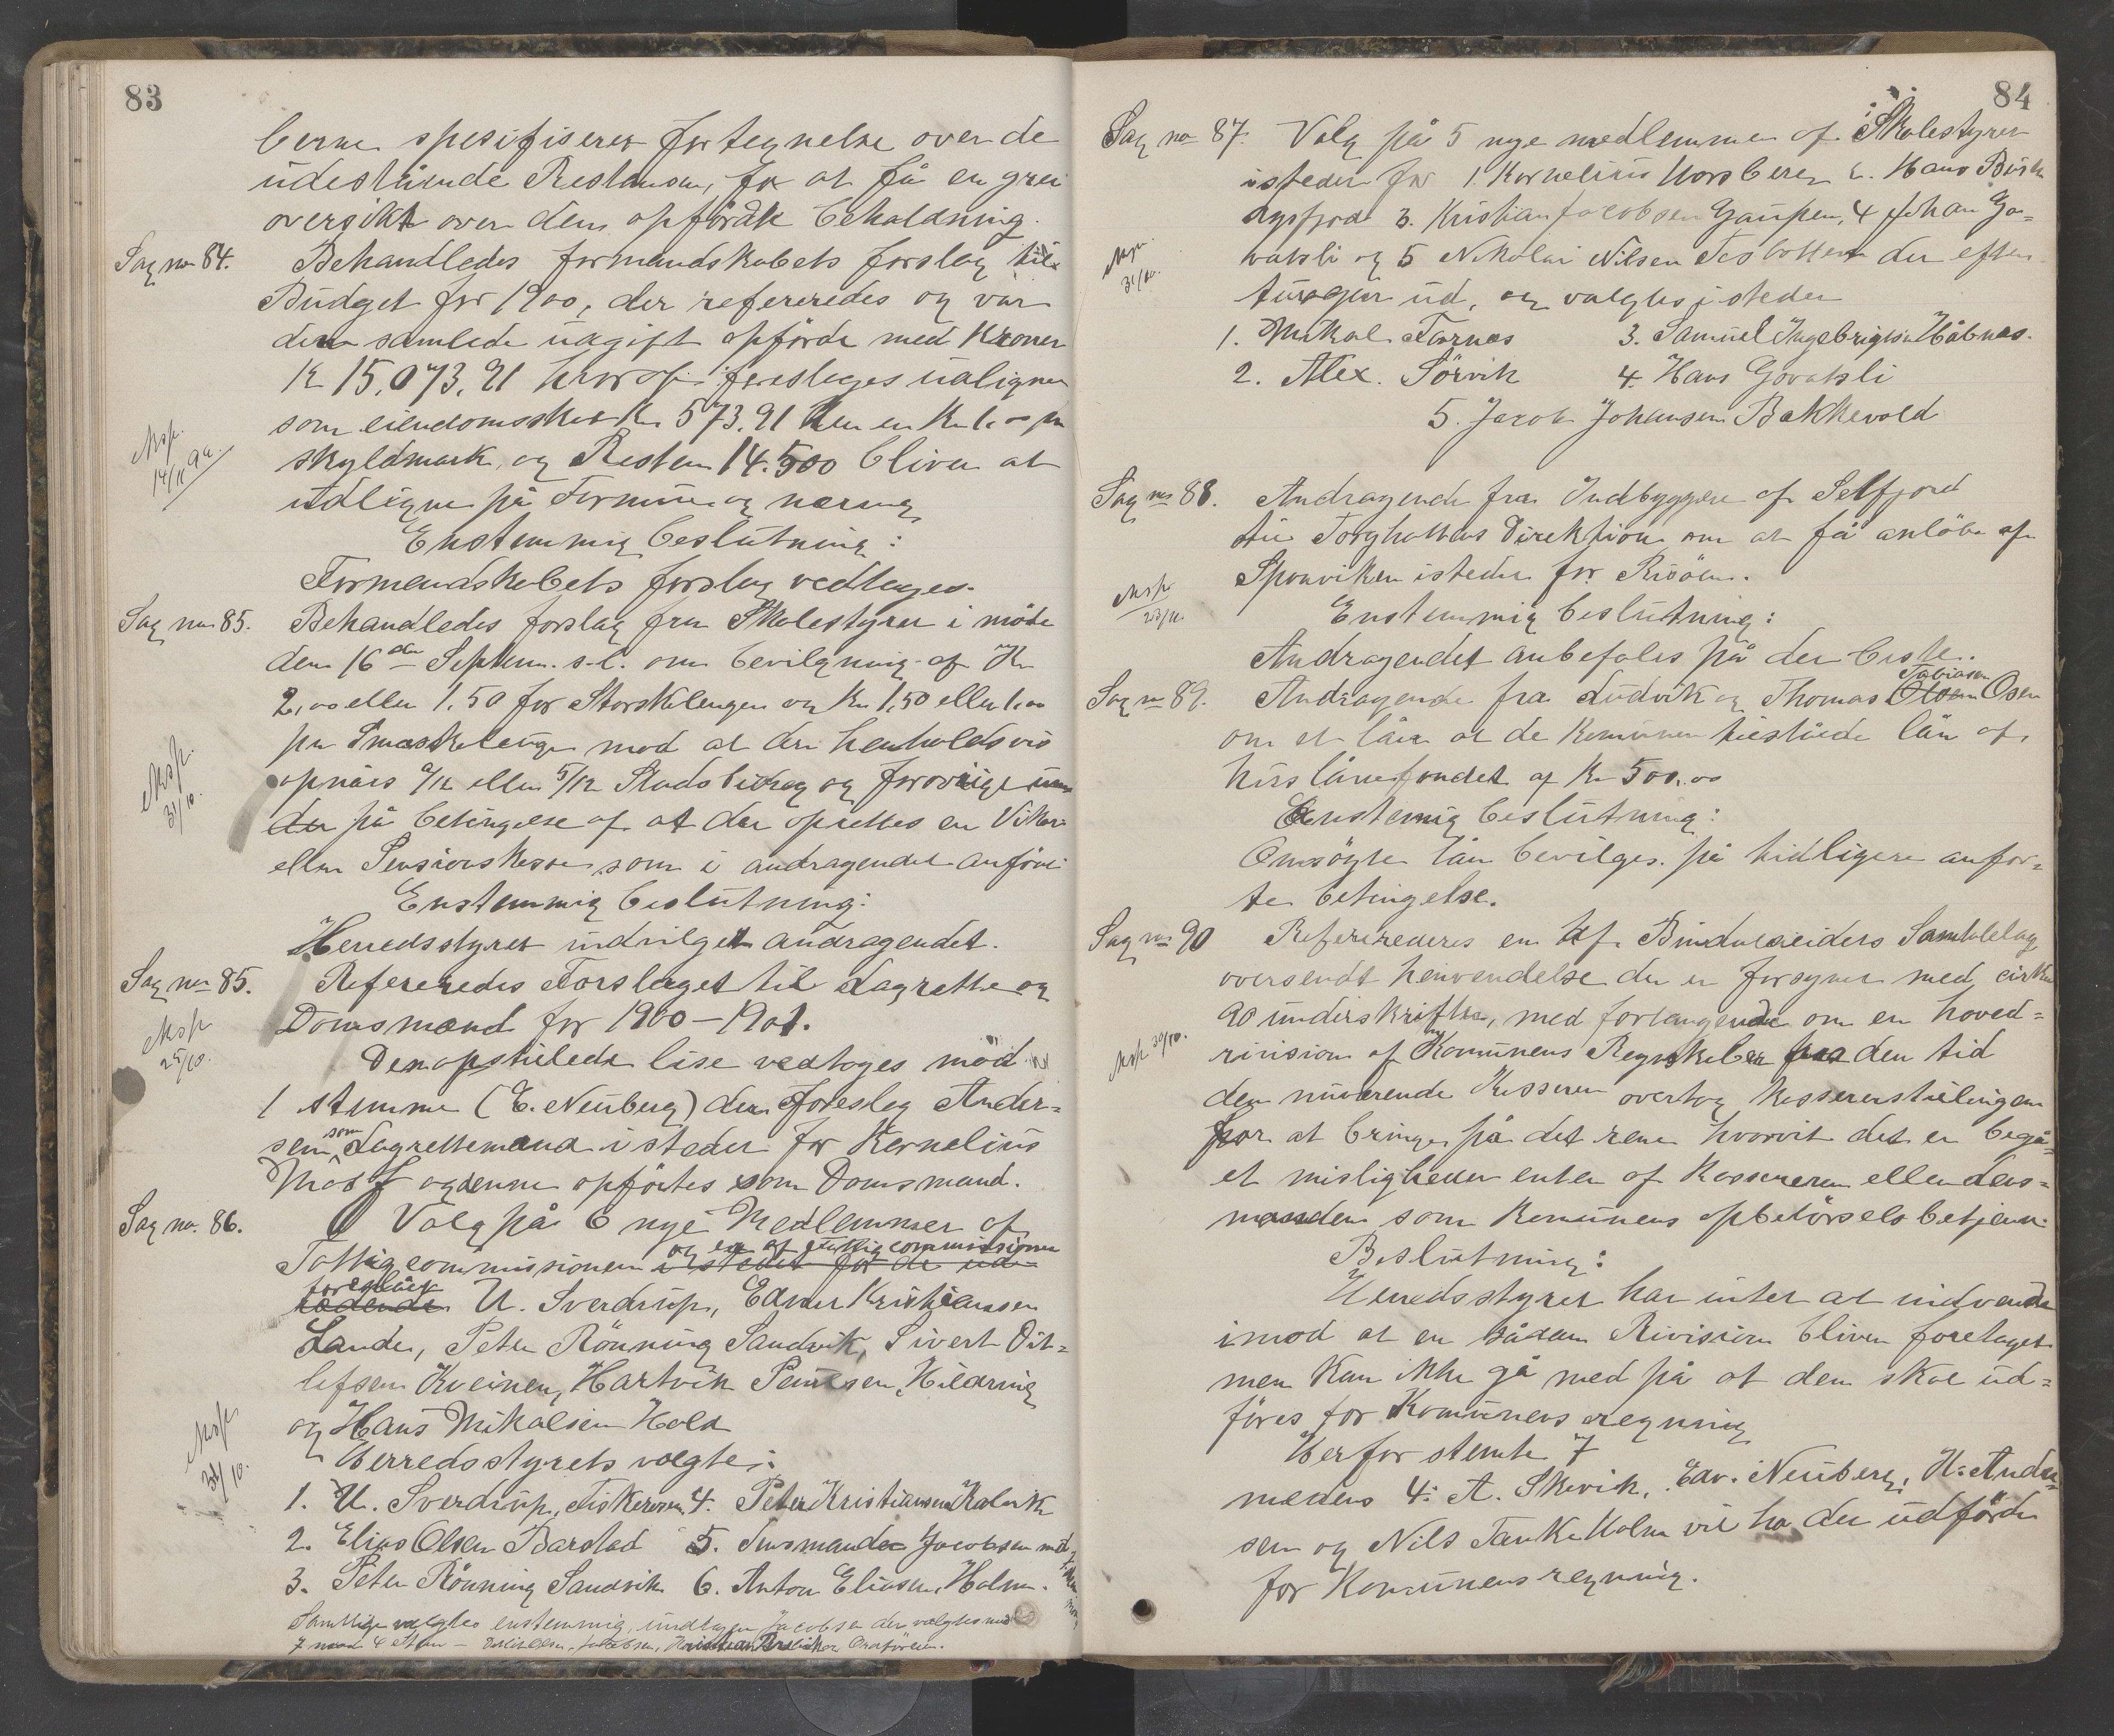 83
berne spesifiseret fortegnelse over de
udestående Restanser, for at få en grei
oversikt over den opförte beholdning.
Sag no 84. Behandledes formandskabets forslag til
Budget for 1900, der refereredes og var
den samlede udgift opförde med Kroner
Kr 15,073,91 hvoraf foresloges udlignet
som eiendomsskat Kr 573,91 den en Kr 1.00 pr
Exsp. 14/11 99.
skyldmark, og Resten 14.500 bliver at
udligne på Formue og næring
Enstemmig beslutning:
Formandskabets forslag vedtoges.
Sag no 85. Behandledes forslag fra Skolestyret i möde
den 16de Septem. s.l. om bevilgning af Kr
2,00 eller 1,50 for Storskolengen og Kr 1,50 eller 1,00
på Småskolenge mod at der henholdsvis
Exsp. 31/10.
opnåes 4/12 eller 5/12 Stadsbidrag og forövrige
der på betingelse af at der oprettes en Vikar
eller Pensionskasse som i andragendet anföre
Enstemmig beslutning:
Herredsstyret indvilget andragendet.
Sag no 85. Refereredes Forslaget til Lagrette og
Domsmænd for 1900-1901.
Exsp 25/10.
Den opstilede lise vedtoges mod
1 stemme (E. Neuberg) der foreslog Ander-
sen som Lagrettemand i steder for Kornelius
Mos f og denne opförtes som Domsmand.
Sag no. 86. Valg på 6 nye Medlemmer af
og en af fattigcommissionen
Fattigcommissionen i stedet for de ud-
foreslået
tredende U. Sverdrup, Edvart Kristiansen
Sande, Peter Rönning Sandvik, Sivert Dit-
lefsen Kveinen, Hartvik Paulsen, Hildring
og Hans Mikalsen Hold
Exsp 31/10.
Herredsstyrets valgte:
1. U. Sverdrup, Fiskerosen 4. Peter Kristiansen Kalvik
2. Elias Olsen Barstad 5. Lensmand Jacobsen
3. Peter Rönning Sandvik 6. Anton Eliasen, Holm.
Samtlige valgtes enstemmig, undtagen Jacobsen der valgtes med
7 mod 4 Stem
84
Sag no 87. Valg på 5 nye medlemmer af Skolestyret
isteden for 1. Kornelius Horsberg 2. Hans Bind-
dgsfjord 3. Kristian Jacobsen Gaupen, 4 Johan Go-
Exsp. 31/10.
vatsli og 5 Nikolai Nilsen Terbotten der efter
tur går ud, og valgtes i steden
1. Mikal Tarnes 3. Samuel Ingebrigtsen Håbnes.
2. Alex. Sörvik 4. Hans Govatsli
5. Jacob Johansen Bakkevold
Sag no 88. Andragende fra Indbyggere af Selfjord
til Torghattens Direktion om at få anlöbe af
Exsp 23/10.
Sponviken istedet for Risöen.
Enstemmig beslutning:
Andragendet anbefales på det beste.
Tobiasen
Sag no 89. Andragende fra Ludvik og Thomas Olsen Osen
om et lån at de Komunen tilståede lån af
huslånefondet af Kr 500.00
Enstemig beslutning:
Omsögte lån bevilges på tidligere anfor-
te betingelse.
Sag no 90 Refereredes en af Bindalseidets Samtalelag
oversendt henvendelse der er forsynet med cirka
90 underskrifter, med forlangende om en hoved-
Exsp 30/10.
rivision af Komunens Regnskaber fra den tid
den nuverende Kasserer overtog Kassererstillingen
for at bringe på det rene hvorvit det er begå-
et misligheder enten af Kassereren eller lens-
manden som Komunens opbetörsels betjent.
Beslutning:
Herredsstyret har intet at indvende
imod at en sådan Rivision bliver foretaget
men kan ikke gå med på at den skal ud-
föres for Komunens regning
Herfor stemte 7
medens 4: A. Skevik, Edv. Neuberg, H. Ander-
sen og Nils Tanke Holm vil ha den udförde
for Komunens regning.